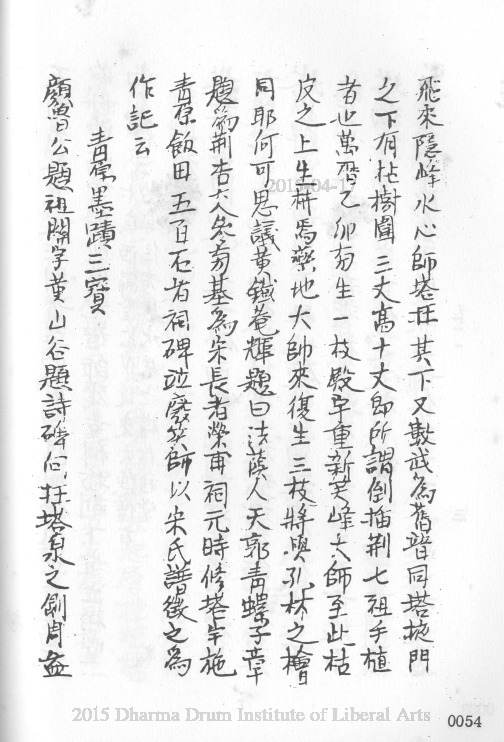 飛來隱峰水心師塔在其下又數武為舊普同塔掖門
之下有枯樹圍三丈高十丈即所謂倒插荆七祖手植
者也萬曆乙卯旁生一枝殿宇重新笑峰大師至此枯
皮之上生耕焉藥地大師來復生三枝將與孔林之檜
同耶何可思議黄鐵菴輝題曰法蔭人天郭青螺子章
題荊杏大人旁基為宋長者榮甫祠元時修塔年施
青原飯田五百石者祠碑泣廢笑師以宋氏譜徵之為
作記云
青原墨蹟三寶
顏魯公題祖關字黄山谷題詩碑在塔泉之側周益
2019-04-17
2015 Dharma Drum Institute of Liberal Arts
0054